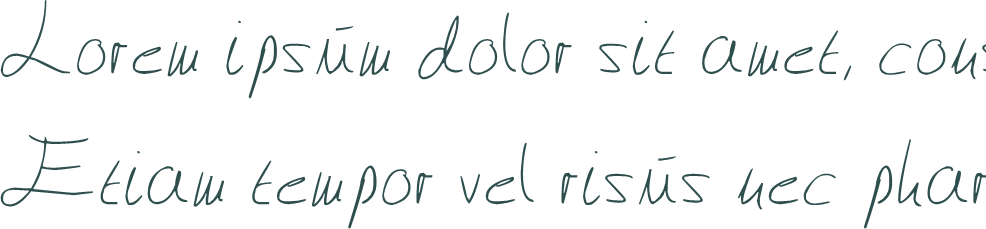 Lorem ipsum dolor sit amet, cons
Etiam tempor vel risus nec phar